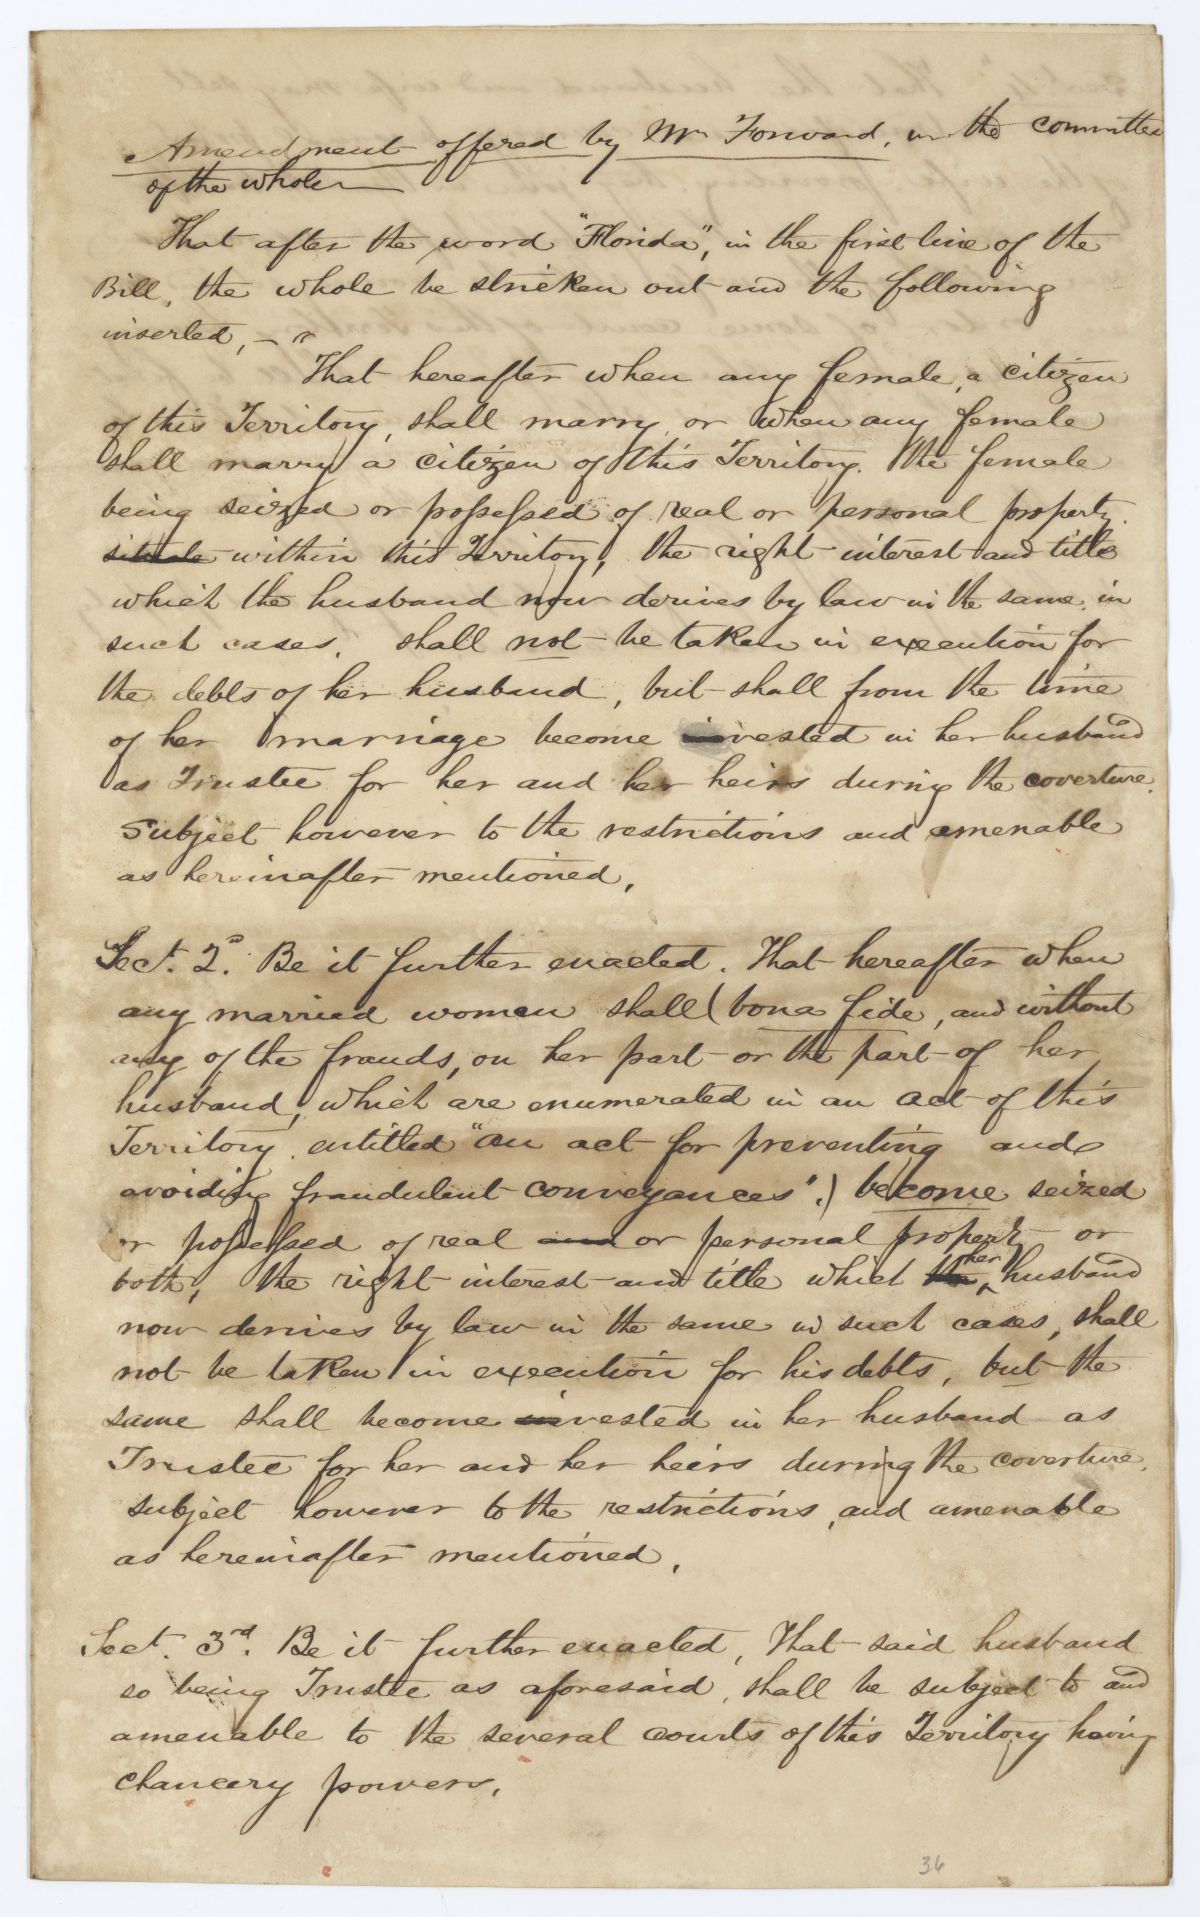 Amendment offered by Mr Forward, in the committee
of the whole
That after the word "Florida", in the first line of the
Bill, the whole be stricken out and the following
inserted, – "
That hereafter when any female, a citizen
of this Territory, shall marry, or when any female
shall marry a citizen of this Territory. the female
being seized or possessed of real or personal property.
situate within this Territory, the right interest and title
which the husband now derives by law in the same, in
such cases, shall not be taken in execution for
the debts of her husband, but shall from the time
of her marriage become invested in her husband
as Trustee for her and her heirs during the coverture.
Subject however to the restrictions and amenable
as hereinafter mentioned,
Sect. 2d. Be it further enacted. That hereafter when
any married women shall (bona fide, and without
any of the frauds, on her part or the part of her
husband, which are enumerated in an act of this
Territory, entitled "an act for preventing and
avoiding fraudulent conveyances".) become seized
or possessed of real and or personal property or
both, the right interest and title which the her husband
now derives by law in the same in such cases, shall
not be taken in execution for his debts, but the
same shall become invested in her husband as
Trustee for her and her heirs during the coverture.
subject however to the restrictions, and amenable
as hereinafter mentioned,
Sect. 3rd. Be it further enacted, That said husband
so being Trustee as aforesaid, shall be subject to and
amenable to the several courts of this Territory having
chancery powers.
36